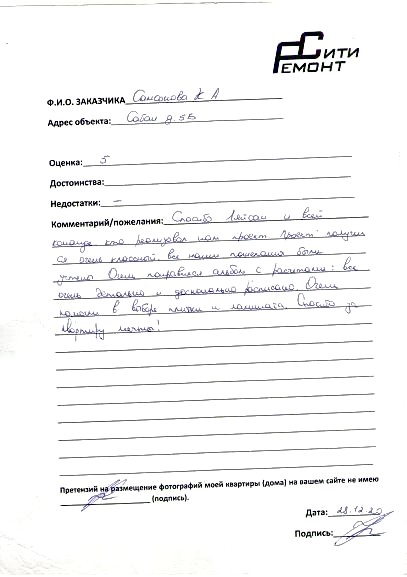 СИТИ
РЕМОНТ
Ф.И.О. ЗАКАЗЧИКА Самсонова К А
Адрес объекта: Сабан д. 5Б
Оценка: 5
Достоинства:
Недостатки: –
Комментарий/пожелания: Спасибо Ляйсан и всей
команде кто реализовал нам проект. Проект получил
ся очень классный. все наши пожелания были
учтены Очень понравился альбом с расчетами: все
очень детально и досконально расписано. Очень
помогли в выборе плитки и ламината. Спасибо за
квартиру мечты!
Претензий на размещение фотографий моей квартиры (дома) на вашем сайте не имею
(подпись).
Дата: 28.12.20
Подпись: